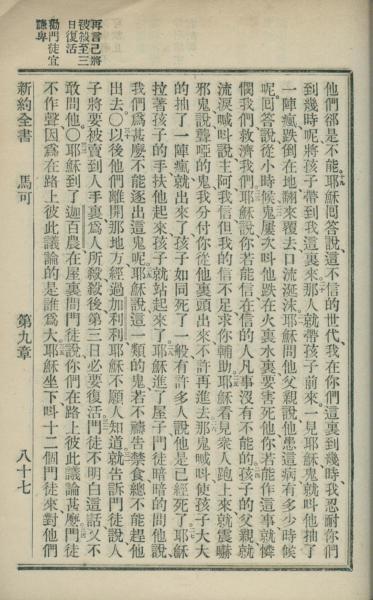 再言己將
被殺至三
日復活
勸門徒宜
謙卑
他們卻是不能耶穌回答說、這不信的世代、我在你們這裏到幾時、我忍耐你們
到幾時呢、將孩子帶到我這裏來、那人就帶孩子前來、一見耶穌、鬼就叫他抽了
一陣瘋、跌倒在地、翻來覆去、口流涎沫、耶穌問他父親說、他患這病有多少時候
呢、回答說、從小時候鬼屢次叫他跌在火裏水裏、要害死他、你若能作這事、就憐
憫我們、救濟我們、耶穌說、你若能信、在信的人、凡事沒有不能的、孩子的父親就
流淚喊叫說、主阿、我信、但我的信不足、求你輔助、耶穌看見衆人跑上來、就嚇
邪鬼說、聾啞的鬼、我分付你從他裏頭出來、不許再進去、那鬼喊叫、使孩子大大
的抽了一陣瘋、就出來了、孩子如同死了一般、有許多人說、他是已經死了、耶穌
拉著孩子的手、扶他起來、孩子就站起來了、耶穌進了屋子、門徒暗暗的問他說、
我們爲甚麼不能逐出這鬼呢、耶穌說、這一類的鬼、若不禱告禁食、總不能趕他
出去〇以後他們離開那地方、經過加利利、耶穌不願人知道、就告訴門徒說、人
子將要被賣到人手裏、爲人所殺、殺後第三日、必要復活、門徒不明白這話、又不
敢問他〇耶穌到了迦百農、在屋裏問門徒說、你們在路上彼此議論甚麼、門徒
不作聲、因爲在路上彼此議論的是誰爲大、耶穌坐下、叫十二個門徒來、對他們
新約全書 馬可 第九章 八十七